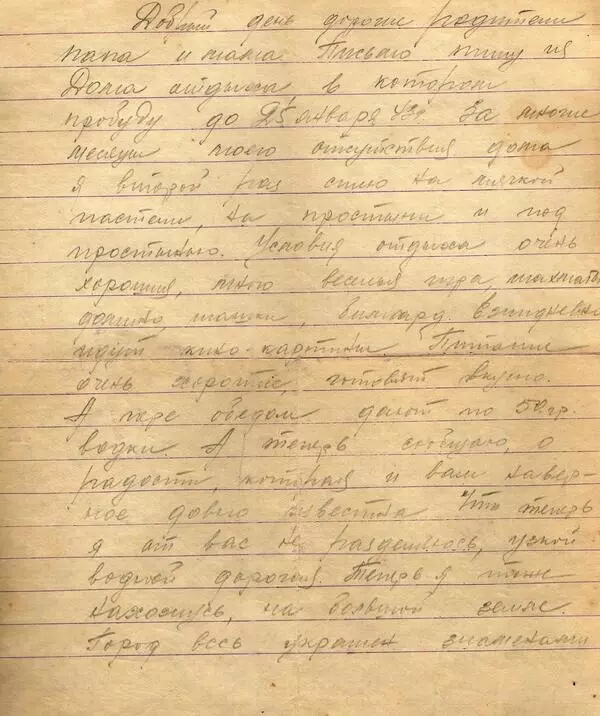 Добрый день дорогие родители
папа и мама Письмо пишу из
Дома отдыха, в котором
пробуду до 25 января 43г. За многие
месяцы моего отсутствия дома
я второй раз сплю на мягкой
пастели, на простыни и под
простыною. Условия отдыха очень
хорошия, много веселья игра, шахматы
домино, шашки, билиард. Ежидневно
идут кино-картины. Питание
очень хорошее, готовят вкусно.
А пере обедом дают по 50 гр.
водки. А теперь сообщаю, о
радости, которая и вам навер-
ное давно известна Что теперь
я от вас не разделяюсь, узкой
водной дорогой. Теперь я тоже
нахожусь, на большой земле.
Город весь украшен знаменами